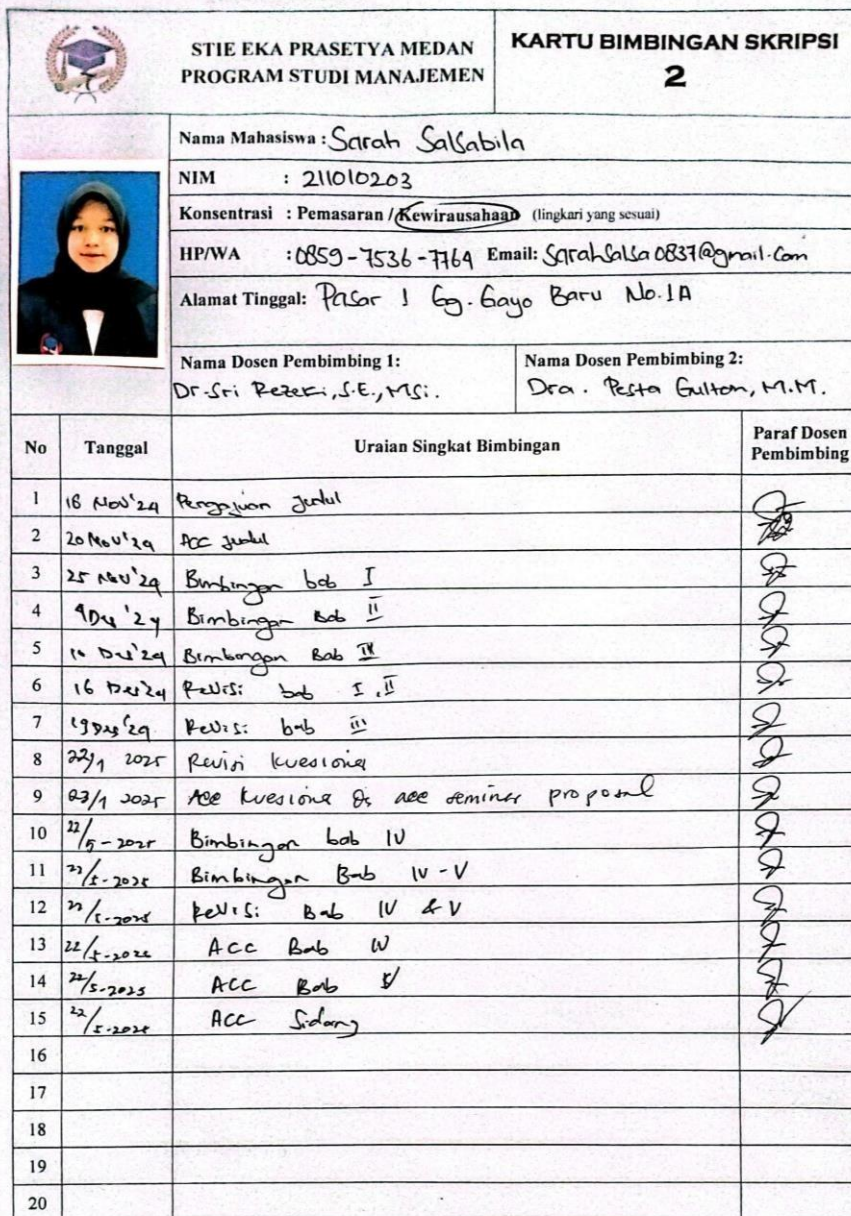 STIE EKA PRASETYA MEDAN
PROGRAM STUDI MANAJEMEN
KARTU BIMBINGAN SKRIPSI
2
Nama Mahasiswa : Sarah Salsabila
NIM : 211010203
Konsentrasi : Pemasaran / Kewirausahaan (lingkari yang sesuai)
HP/WA : 0859-7536-7764 Email: Sarahsalsa0837@gmail.com
Alamat Tinggal: Pasar 1 Gg. Gayo Baru No.1A
Nama Dosen Pembimbing 1:
Dr. Sri Rezeki, S.E., MSi.
Nama Dosen Pembimbing 2:
Dra. Pesta Gultom, M.M.
No Tanggal Uraian Singkat Bimbingan Paraf Dosen Pembimbing
1 18 Nov'24 Pengajuan judul
2 20 Nov'24 Acc judul
3 25 Nov'24 Bimbingan bab I
4 4 Des '24 Bimbingan Bab II
5 10 Des'24 Bimbingan Bab III
6 16 Des'24 Revisi bab I, II
7 19 Des'24 Revisi bab III
8 22/1 2025 Revisi kuesioner
9 23/1 2025 Acc kuesioner & acc seminar proposal
10 22/5-2025 Bimbingan bab IV
11 22/5-2025 Bimbingan Bab IV - V
12 22/5-2025 Revisi Bab IV & V
13 22/5-2025 ACC Bab IV
14 22/5-2025 ACC Bab V
15 22/5-2025 ACC Sidang
16
17
18
19
20